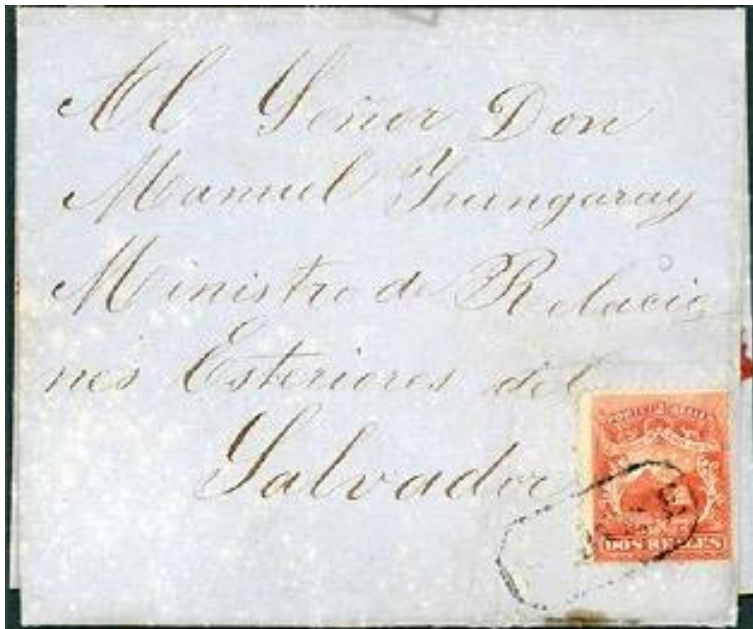 Al Señor Don
Manuel Irungaray
Ministro de Relacio
nes Esteriores del
Salvador
DOS REALES